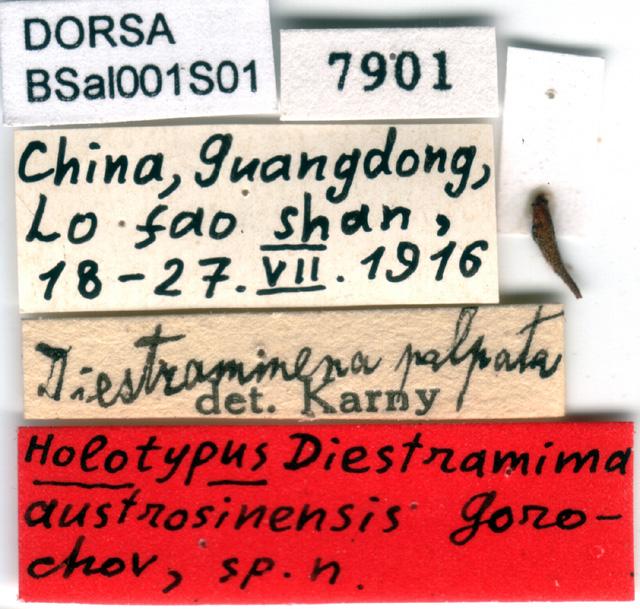 DORSA
BSal001S01
7901
China, Guangdong,
Lo fao shan,
18-27.VII.1916
Diestrammena palpata
det. Karny
Holotypus Diestramima
austrosinensis Goro-
chov, sp. n.